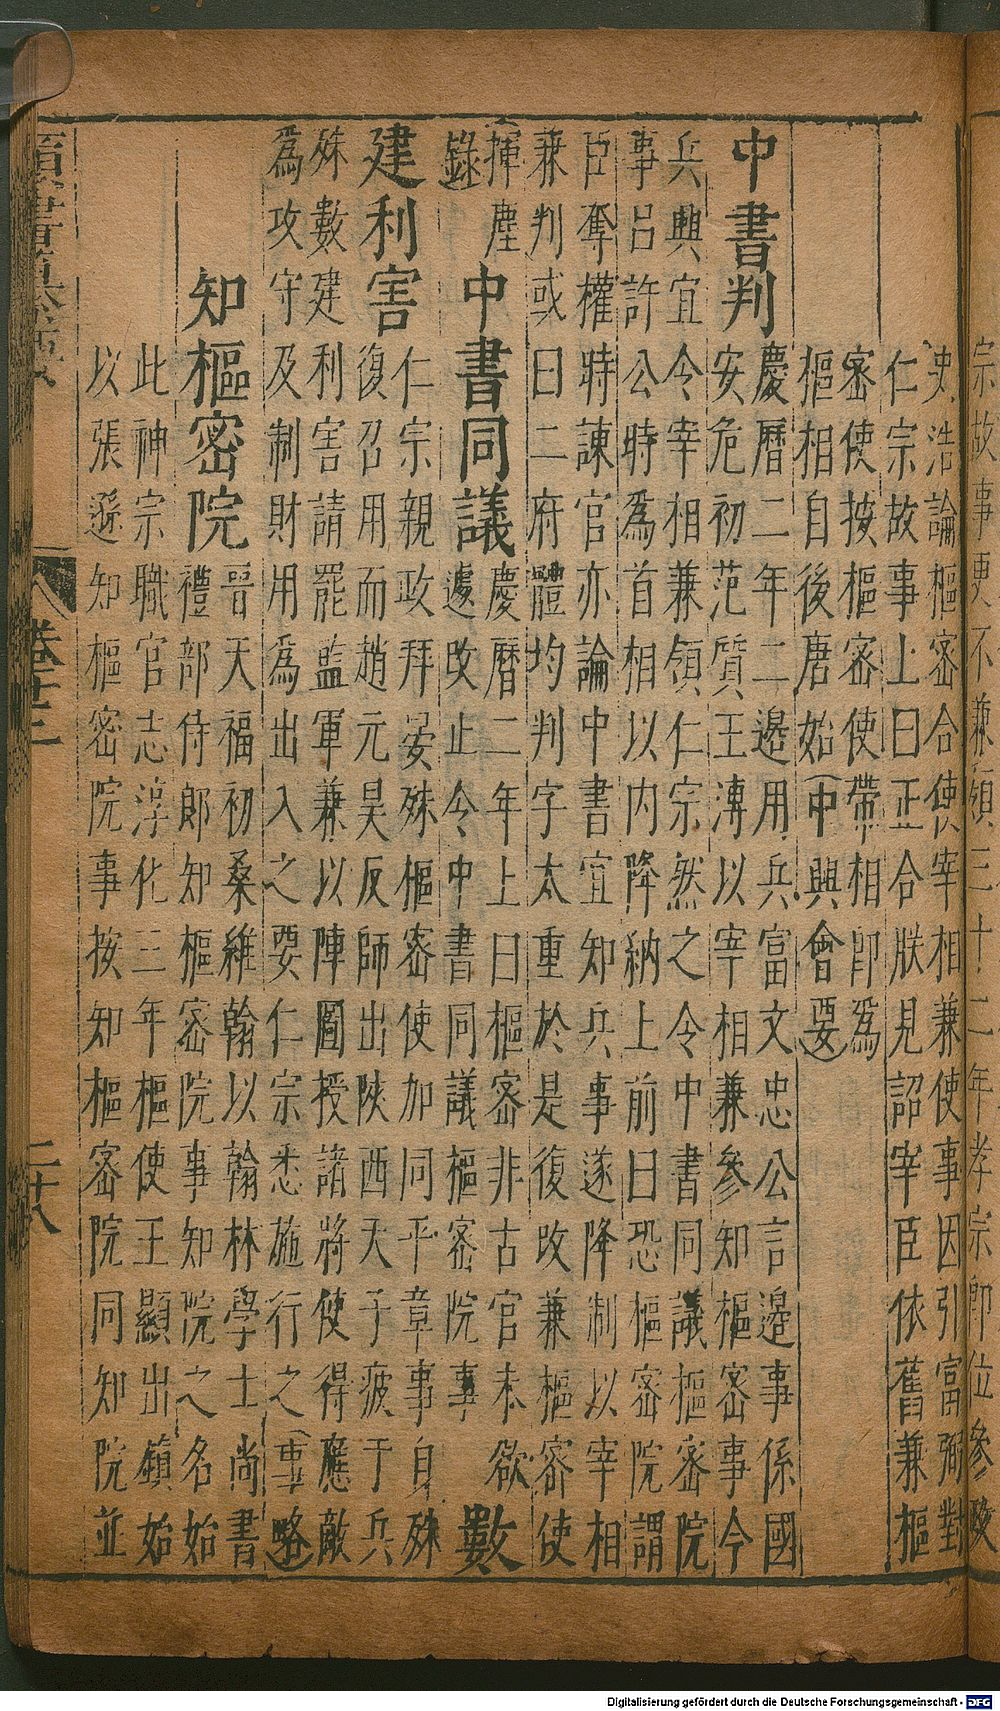 宗故事更不兼領三十二年孝宗即位參政
史浩論樞密合使宰相兼使事因引富弼對
仁宗故事上曰正合朕見詔宰臣依舊兼樞
密使按樞密使帶相即為
樞相自後唐始(中興會要)
中書判
慶曆二年二邊用兵富文忠公言邊事係國
安危初范質王溥以宰相兼參知樞密事今
兵興宜令宰相兼領仁宗然之令中書同議樞密院
事呂許公時為首相以內降納上前曰恐樞密院謂
臣奪權時諫官亦論中書宜知兵事遂降制以宰相
兼判或曰二府體均判字太重於是復改兼樞密使
揮麈
錄
中書同議
慶曆二年上曰樞密非古官未欲
遽改止令中書同議樞密院事
數
建利害
仁宗親政拜晏殊樞密使加同平章事自殊
復召用而趙元昊反師出陝西天子疲于兵
殊數建利害請罷監軍兼以陣圖授諸將使得應敵
為攻守及制財用為出入之要仁宗悉施行之(事略)
知樞密院
晉天福初桑維翰以翰林學士尚書
禮部侍郎知樞密院事知院之名始
此神宗職官志淳化三年樞使王顯出鎮始
以張遜知樞密院事按知樞密院同知院並
二十八
Digitalisierung gefördert durch die Deutsche Forschungsgemeinschaft - DFG